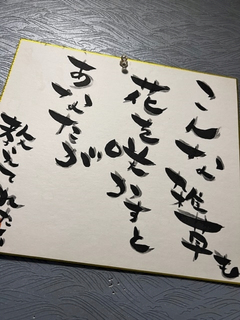 こんな雑草も
花を咲かすと
あなたが
教えてくれた